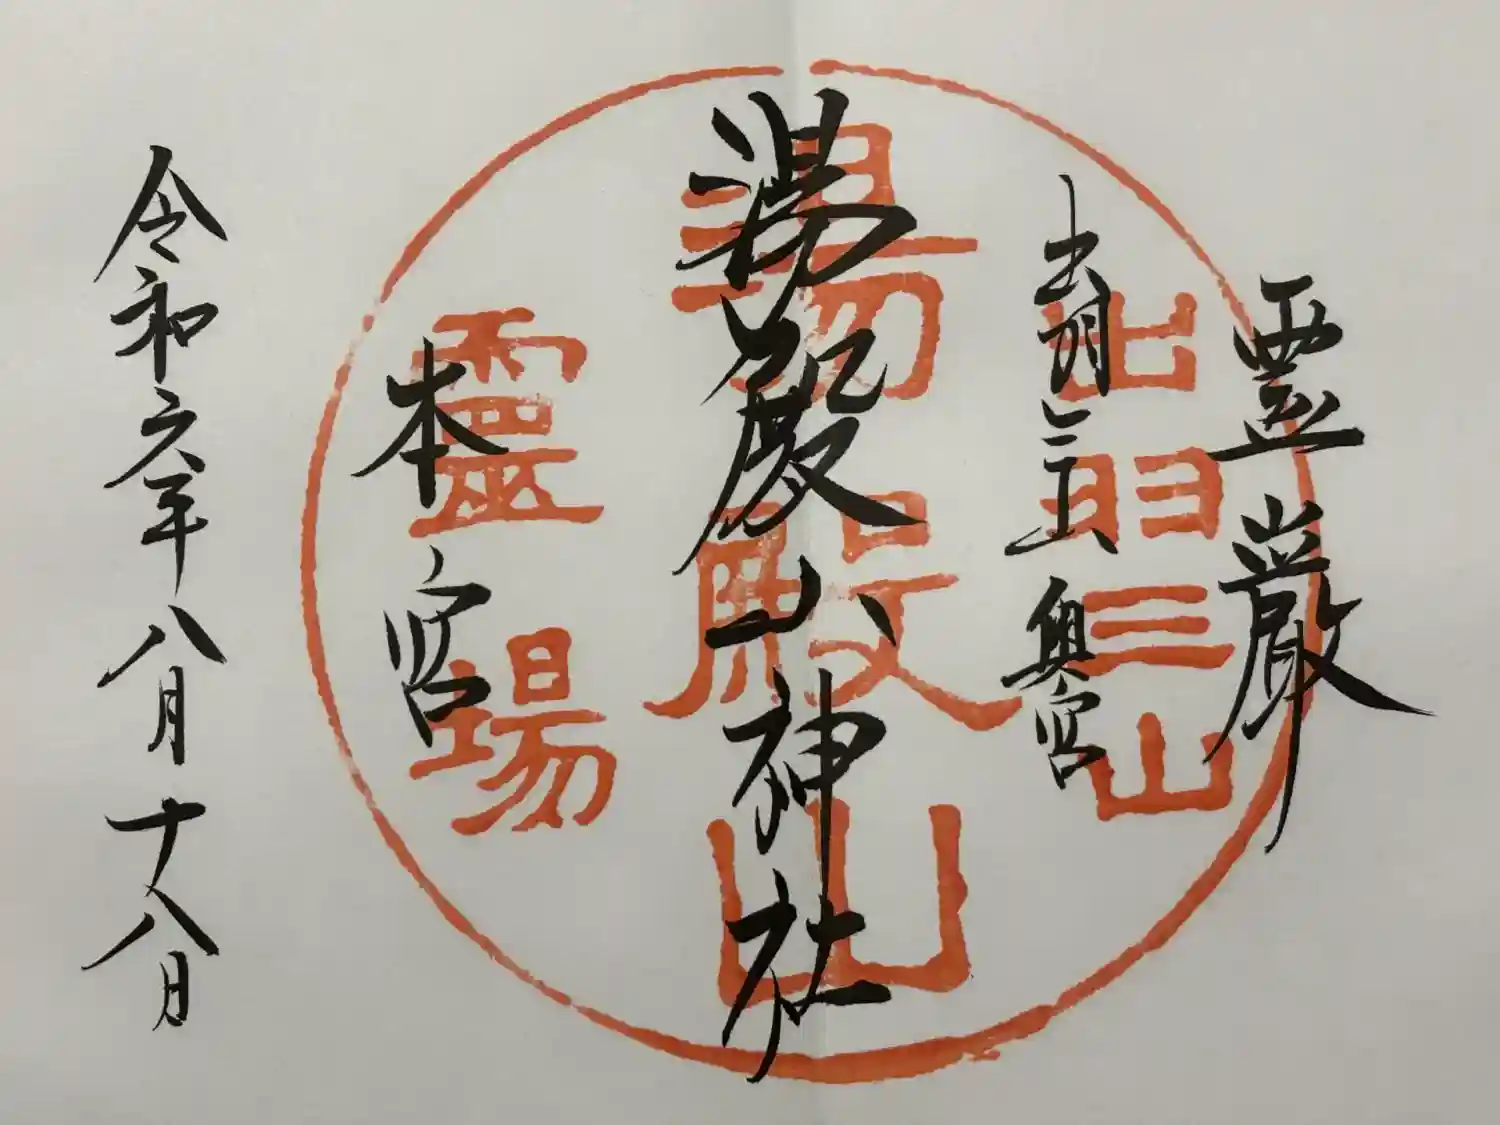 霊巌
出羽三山奥宮
湯殿山神社
本宮
令和六年八月十八日
出羽三山
湯殿山
靈場